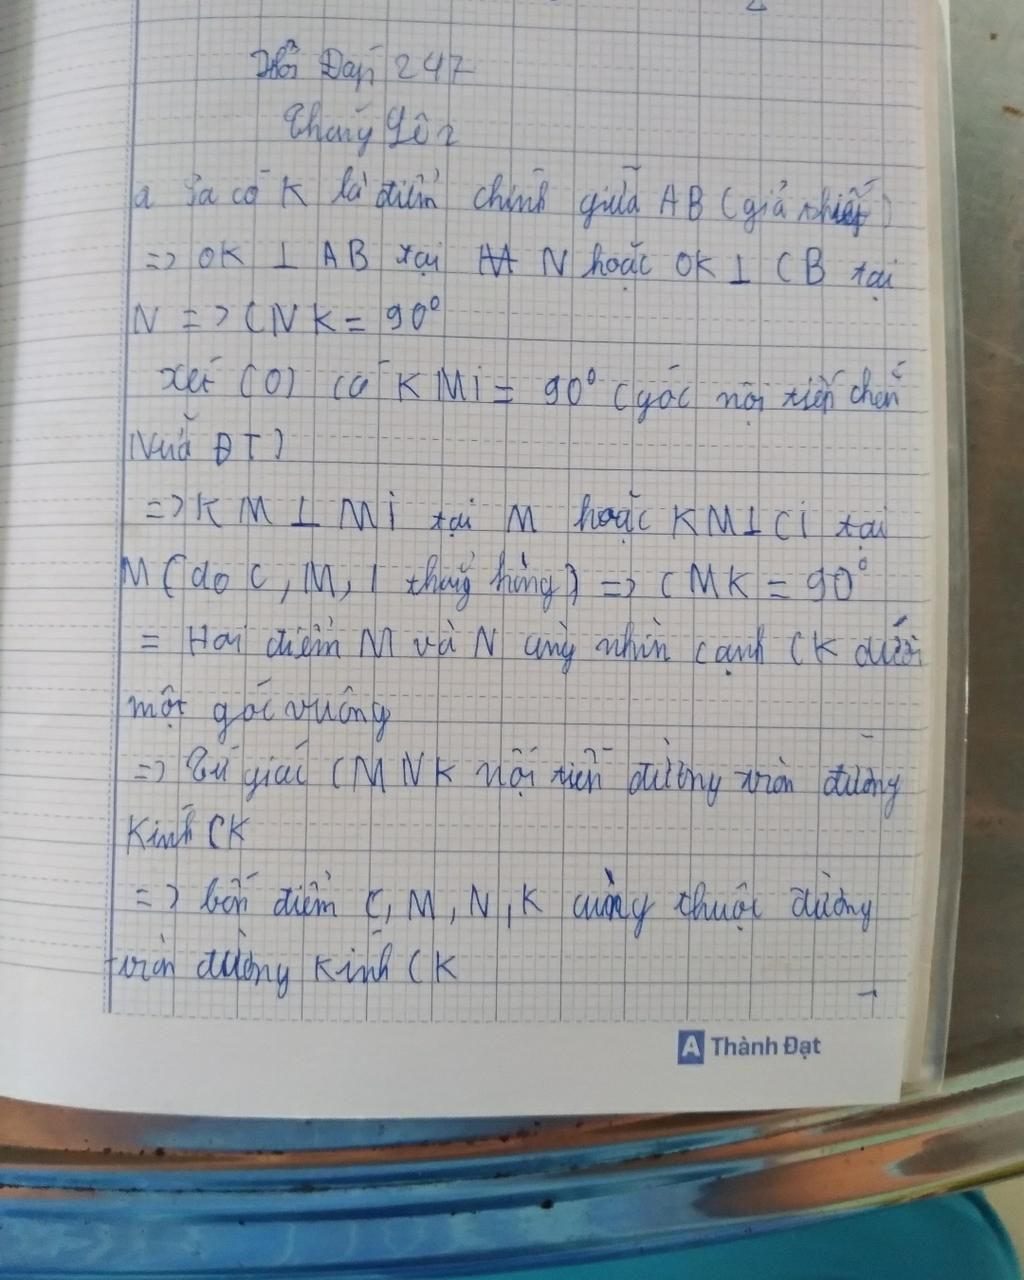 Hỏi Đáp 247
a Ta có K là điểm chính giữa AB (giả thiết)
=> OK ⊥ AB tại N hoặc OK ⊥ CB tại
N => CNK = 90°
Xét (O) có KMI = 90° (góc nội tiếp chắn
Nửa ĐT)
=> KM ⊥ MI tại M hoặc KM ⊥ CI tại
M (do C, M, I thẳng hàng) => CMK = 90°
= Hai điểm M và N cùng nhìn cạnh CK dưới
một góc vuông
=> Tứ giác CMNK nội tiếp đường tròn đường
Kính CK
=> bốn điểm C, M, N, K cùng thuộc đường
tròn đường kính CK
A Thành Đạt